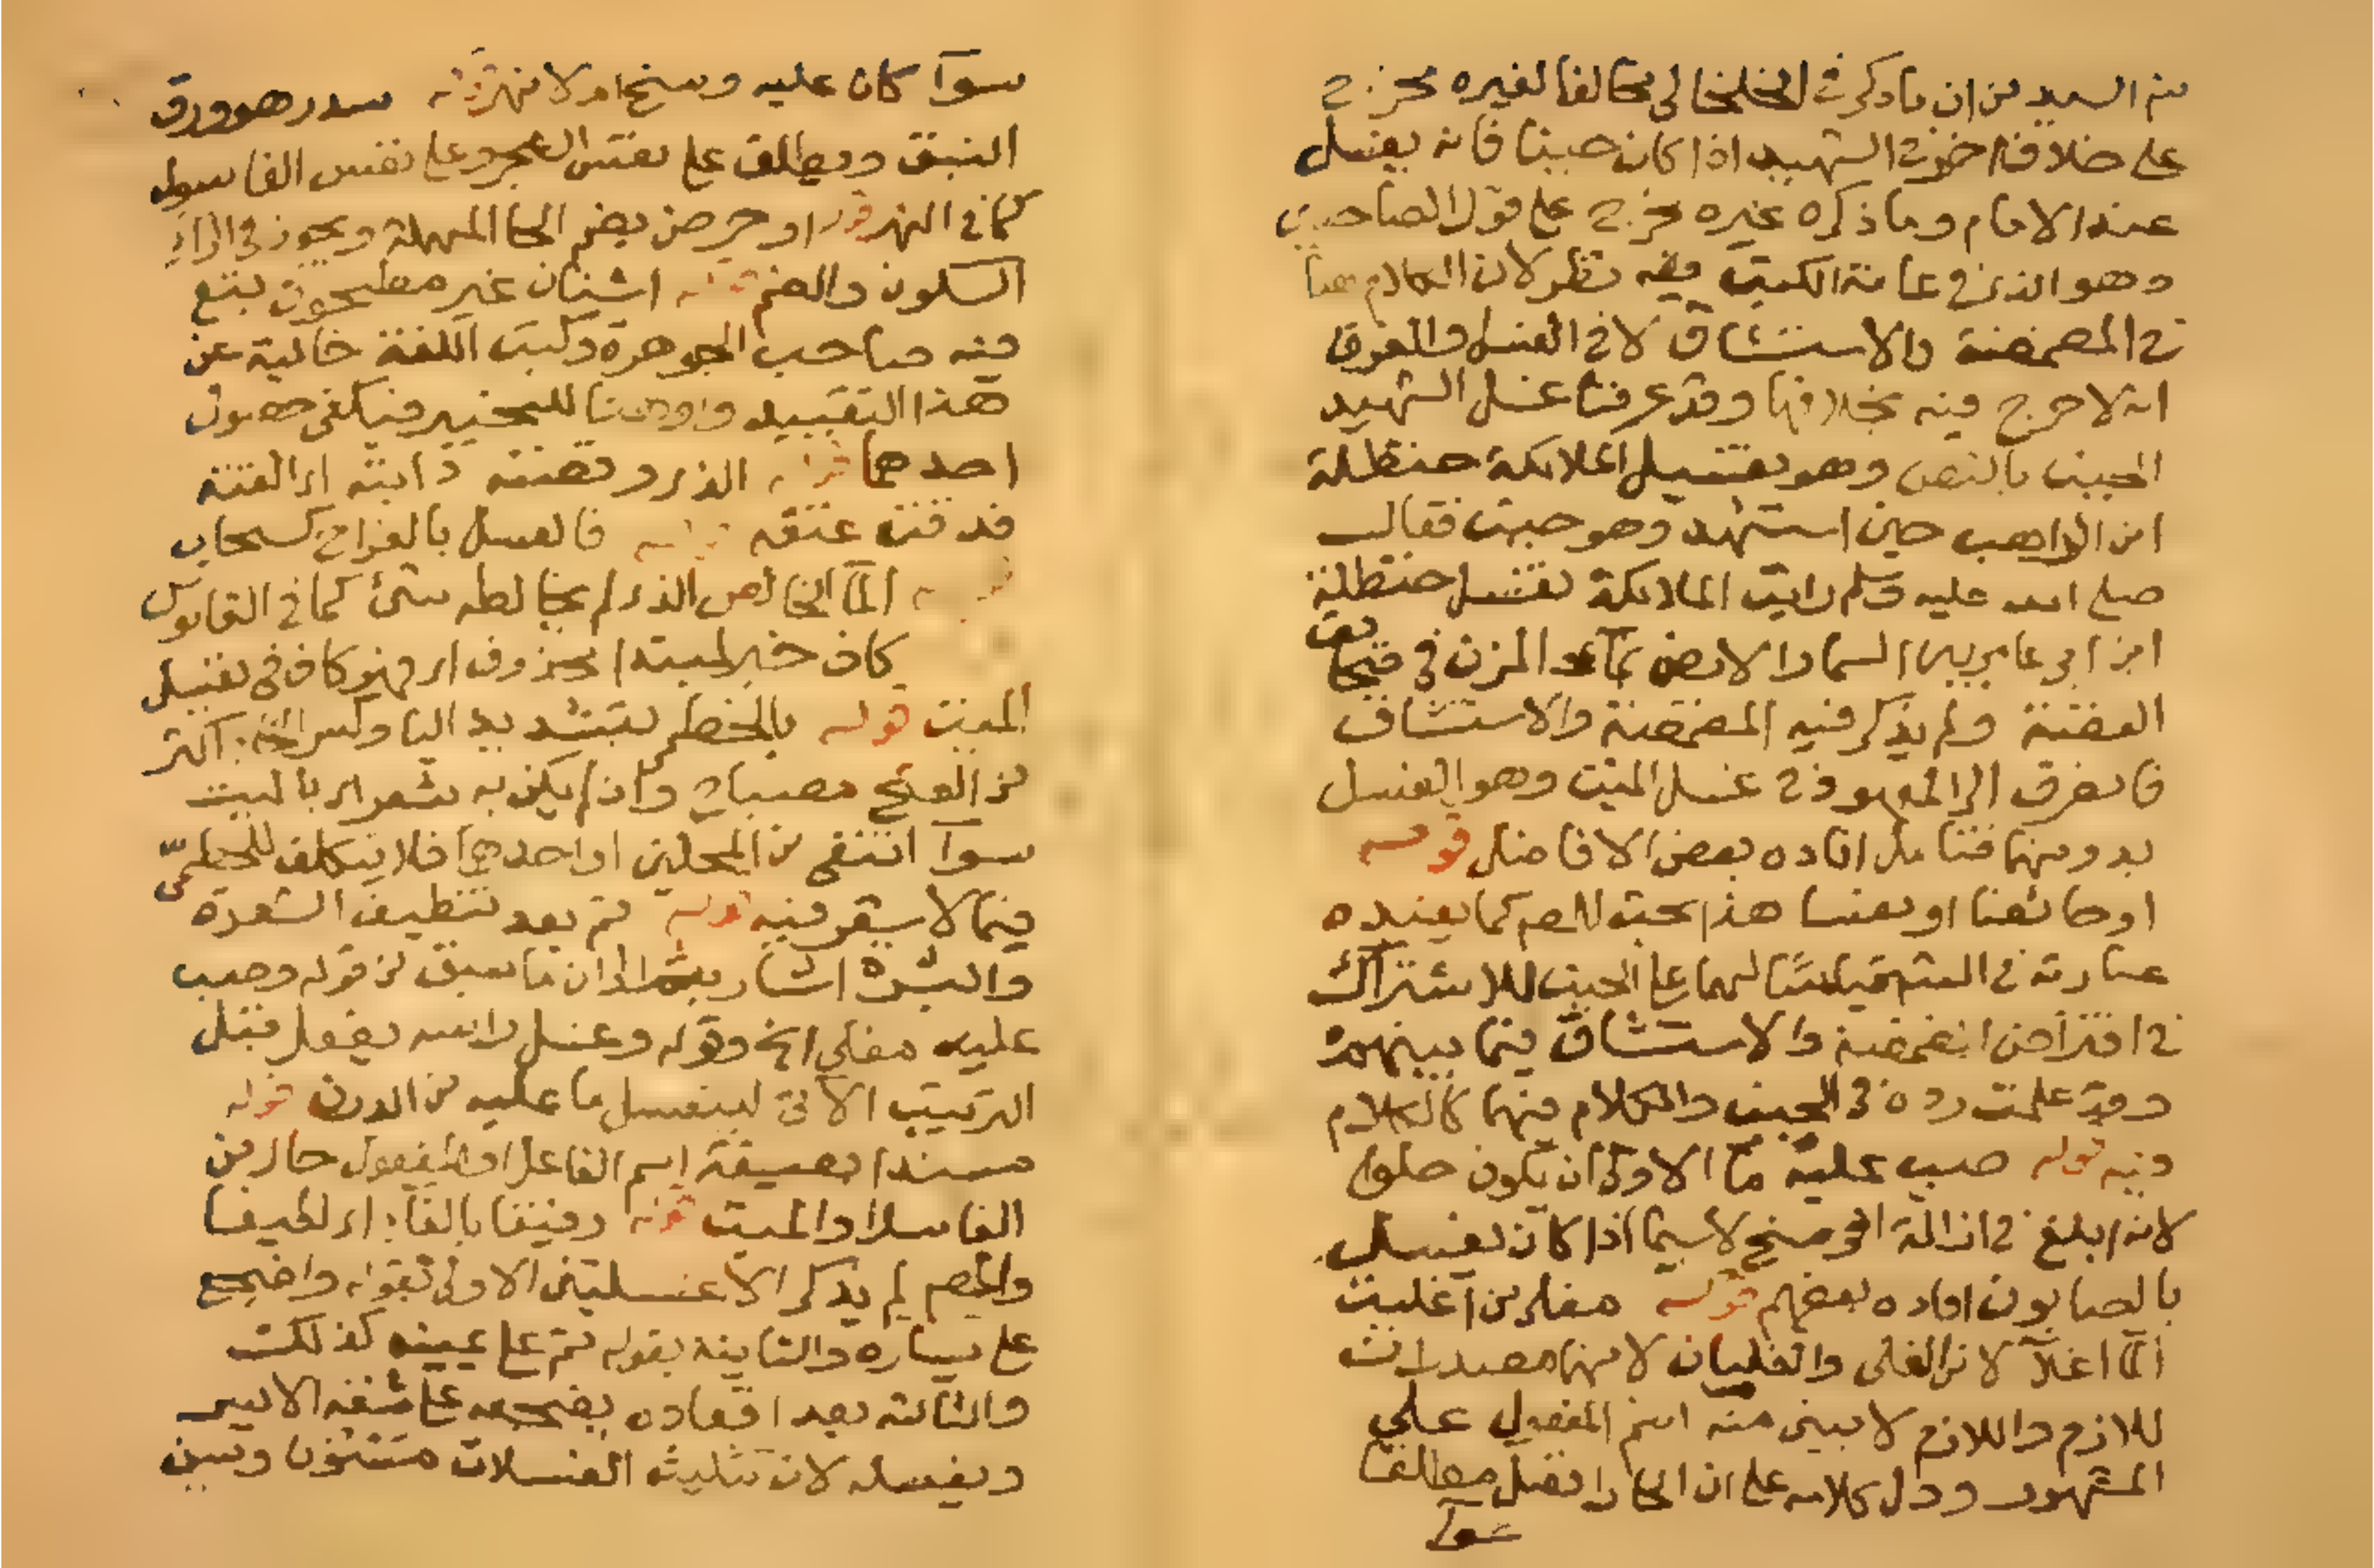 السيد من ان ما ذكره في الخلخالي مخالفا لغيره مخرج
على خلاف اخر في الشهيد اذا كان جنبا فانه يغسل
عند الامام وما ذكره غيره مخرج على قول الصاحبين
وهو الذي في عامة الكتب ففيه نظر لان الكلام هنا
في المضمضة والاستنشاق لا في الغسل والفرق
انه لا حرج فيه بخلافهما وقد عرفنا غسل الشهيد
الجنب بالنص وهو تغسيل الملائكة حنظلة
ابن الراهب حين استشهد وهو جنب فقال
صلى الله عليه وسلم رايت الملائكة تغسل حنظلة
ابن ابي عامر بين السما والارض بماء المزن في صحاف
الفضة ولم يذكر فيه المضمضة والاستنشاق
فانصرف الى المعهود في غسل الميت وهو الغسل
بدونهما فتامل افاده بعض الافاضل قوله
او حائضا او نفسا هذا بحث للمص كما يفيده
عبارته في قياسا لهما على الجنب للاشتراك
في افتراض المضمضة والاستنشاق فيما بينهم
وقد علمت رده في الجنب والكلام فيهما كالكلام
فيه قوله صب عليه ما الاولى ان يكون حلوا
لانه ابلغ في ازالة الوسخ لاسيما اذا كان يغسل
بالصابون افاده بعضهم قوله مغلي من اغليت
الما اغلا لا من الغلي والغليان لانهما مصدران
للازم واللازم لا يبنى منه اسم المفعول على
المشهور ودل كلامه على ان الحار افضل مطلقا
سوآ
سوآ كان عليه وسخ او لا نهر قوله سدر هو ورق
النبق ويطلق على نفس الشجر وعلى نفس الغاسول
كما في النهر قوله او حرض بضم الحا المهملة ويجوز في الراء
السكون والضم قوله اشنان غير مطحون تبع
فيه صاحب الجوهرة وكتب اللغة خالية عن
هذا التقييد واو هنا للتخيير فيكفي حصول
احدهما قوله الذي وقصته دابته اي القته
فدقت عنقه قوله فالغسل بالقراح كسحاب
الما الخالص الذي لم يخالطه شئ كما في القاموس
كاف خبر لمبتدا محذوف اي فهو كاف في تغسيل
الميت قوله بالخطمي بتشديد اليا وكسر الخاء اكثر
من الفتح مصباح وان لم يكن به شعر اي بالميت
سوآ انتفى من المحلين او احدهما فلا يتكلف للخطمي
فيما لا شعر فيه قوله ثم بعد تنظيف الشعرة
والبشرة اشار بثم الى ان ما سبق من قوله وصب
عليه مغلي الخ وقوله وغسل راسه يفعل قبل
الترتيب الاتي لينغسل ما عليه من الدرن قوله
مسندا بصيغة اسم الفاعل او المفعول حال من
الغاسل او الميت قوله رفيقا بالفاء اي لطيفا
والمص لم يذكر الا غسلتين الاولى بقوله واضجع
على يساره والثانية بقوله ثم على يمينه كذلك
والثالثة بعد اقعاده يضجعه على شقه الايسر
ويغسله لان تثليث الغسلات مسنون وسن